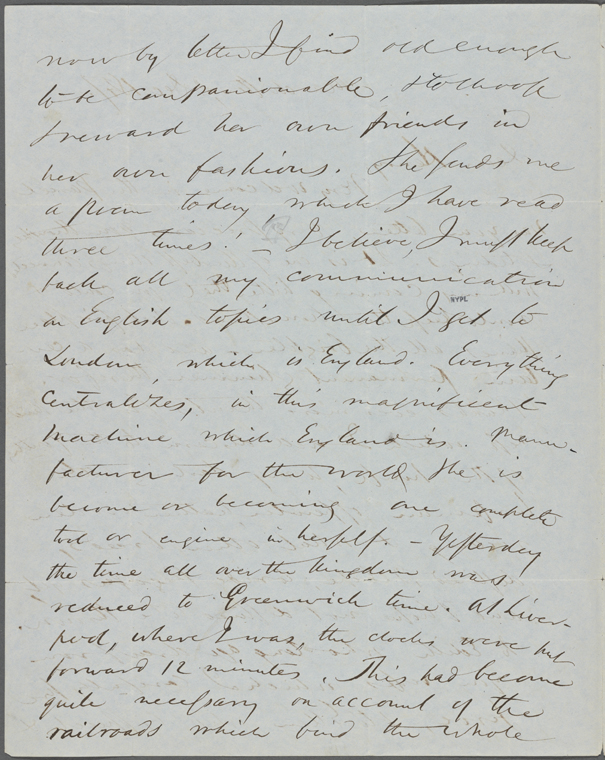 now by letter I find old enough
to be companionable, & to choose
& reward her own friends in
her own fashions. She sends me
a poem today, which I have read
three times! – I believe, I must keep
back all my communication
on English topics until I get to
NYPL
London, which is England. Everything
centralizes, in this magnificent
machine which England is. Manu-
facturer for the world she is
become or becoming one complete
tool or engine in herself. – Yesterday
the time all over the kingdom was
reduced to Greenwich time. At Liver-
pool, where I was, the clocks were put
forward 12 minutes. This had become
quite necessary on account of the
railroads which bind the whole